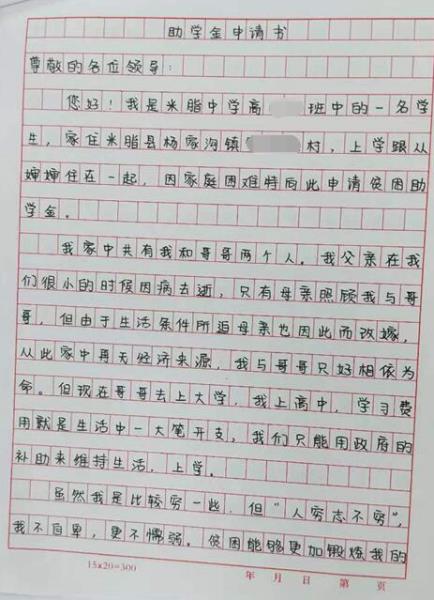 助学金申请书
尊敬的各位领导：
您好！我是米脂中学高 班中的一名学
生，家住米脂县杨家沟镇 村，上学跟从
婶婶住在一起，因家庭困难特向此申请贫困助
学金。
我家中共有我和哥哥两个人。我父亲在我
们很小的时候因病去逝，只有母亲照顾我与哥
哥，但由于生活条件所迫母亲也因此而改嫁，
从此家中再无经济来源，我与哥哥只好相依为
命。但现在哥哥去上大学，我上高中，学习费
用就是生活中一大笔开支，我们只能用政府的
补助来维持生活，上学。
虽然我是比较穷一些，但“人穷志不穷”，
我不自卑，更不懦弱。贫困能够更加锻炼我的
15×20=300 年 月 日 第 页